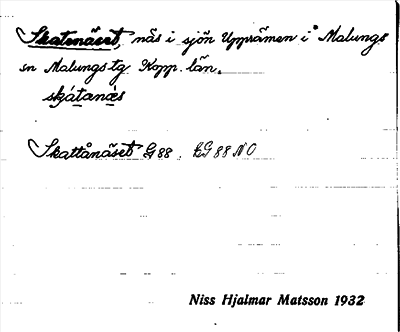 Skatenäset, näs i sjön Uppsämen i Malungs
sn Malungs tg Kopp. län.
skátanæs
Skattånäset G 88. EG 88 NO
Niss Hjalmar Matsson 1932